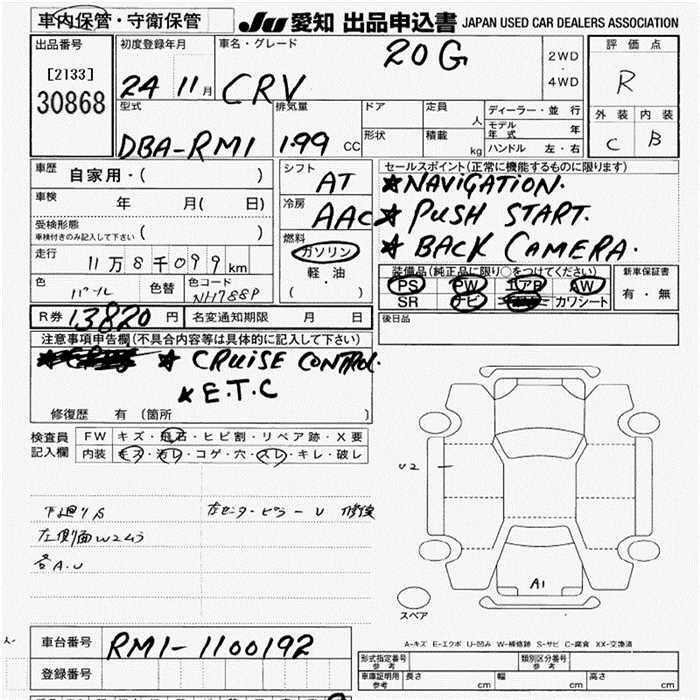 車内保管・守衛保管
JU 愛知 出品申込書 JAPAN USED CAR DEALERS ASSOCIATION
出品番号
[2133]
30868
初度登録年月
24 11月
車名・グレード
CRV 20G
2WD
・
4WD
評価点
R
外装 内装
C B
型式
DBA-RM1
排気量
1.99 CC
ドア
形状
定員 人
積載 kg
ディーラー・並行
モデル年式 年
ハンドル 左・右
車歴
自家用・( )
車検
年 月( 日)
受検形態
車検付きのみ記入して下さい ( )
走行
11万8千099km
色
パール
色替
色コード
NH788P
シフト
AT
冷房
AAC
燃料
ガソリン
軽・油
( ・ )
セールスポイント(正常に機能するものに限ります)
★NAVIGATION.
★PUSH START.
★BACK CAMERA.
装備品(純正品に限り○をつけてください)
PS PW エアB AW
SR ナビ カワシート
新車保証書
有・無
R券 13820円
名変通知期限 月 日
後日品
注意事項申告欄(不具合内容等は具体的に記入して下さい)
★ CRUISE CONTROL.
★E.T.C
修復歴 有 (箇所 )
検査員
記入欄
FW キズ・飛石・ヒビ割・リペア跡・X要
内装 キズ・汚レ・コゲ・穴・スレ・キレ・破レ
下廻りS
左センターピラーU 修復
左側面W2
各A.U
U2
A1
スペア
A-キズ E-エクボ U-凹み W-補修跡 S-サビ C-腐食 XX-交換済
車台番号
RM1-1100192
登録番号
形式指定番号
参考
類別区分番号
参考
車庫証明用
参考
長さ cm 幅 cm 高さ cm